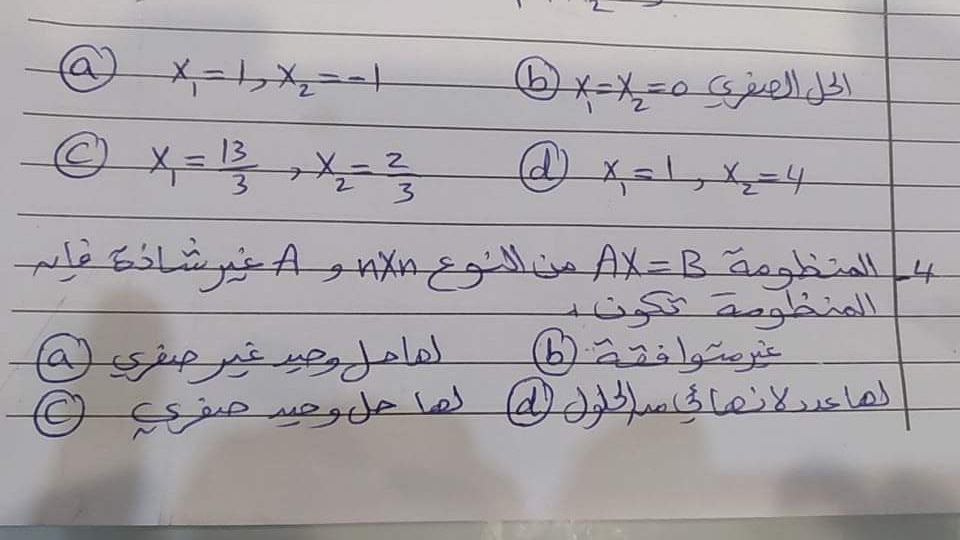 (a) x₁ = 1, x₂ = -1 (b) x₁ = x₂ = 0 الحل الصفري
(c) x₁ = 13/3 , x₂ = 2/3 (d) x₁ = 1 , x₂ = 4
4- المنظومة AX = B من النوع n×n و A غير شاذة فإن
المنظومة تكون
(a) لها حل وحيد غير صفري (b) غير متوافقة
(c) لها حل وحيد صفري (d) لها عدد لا نهائي من الحلول